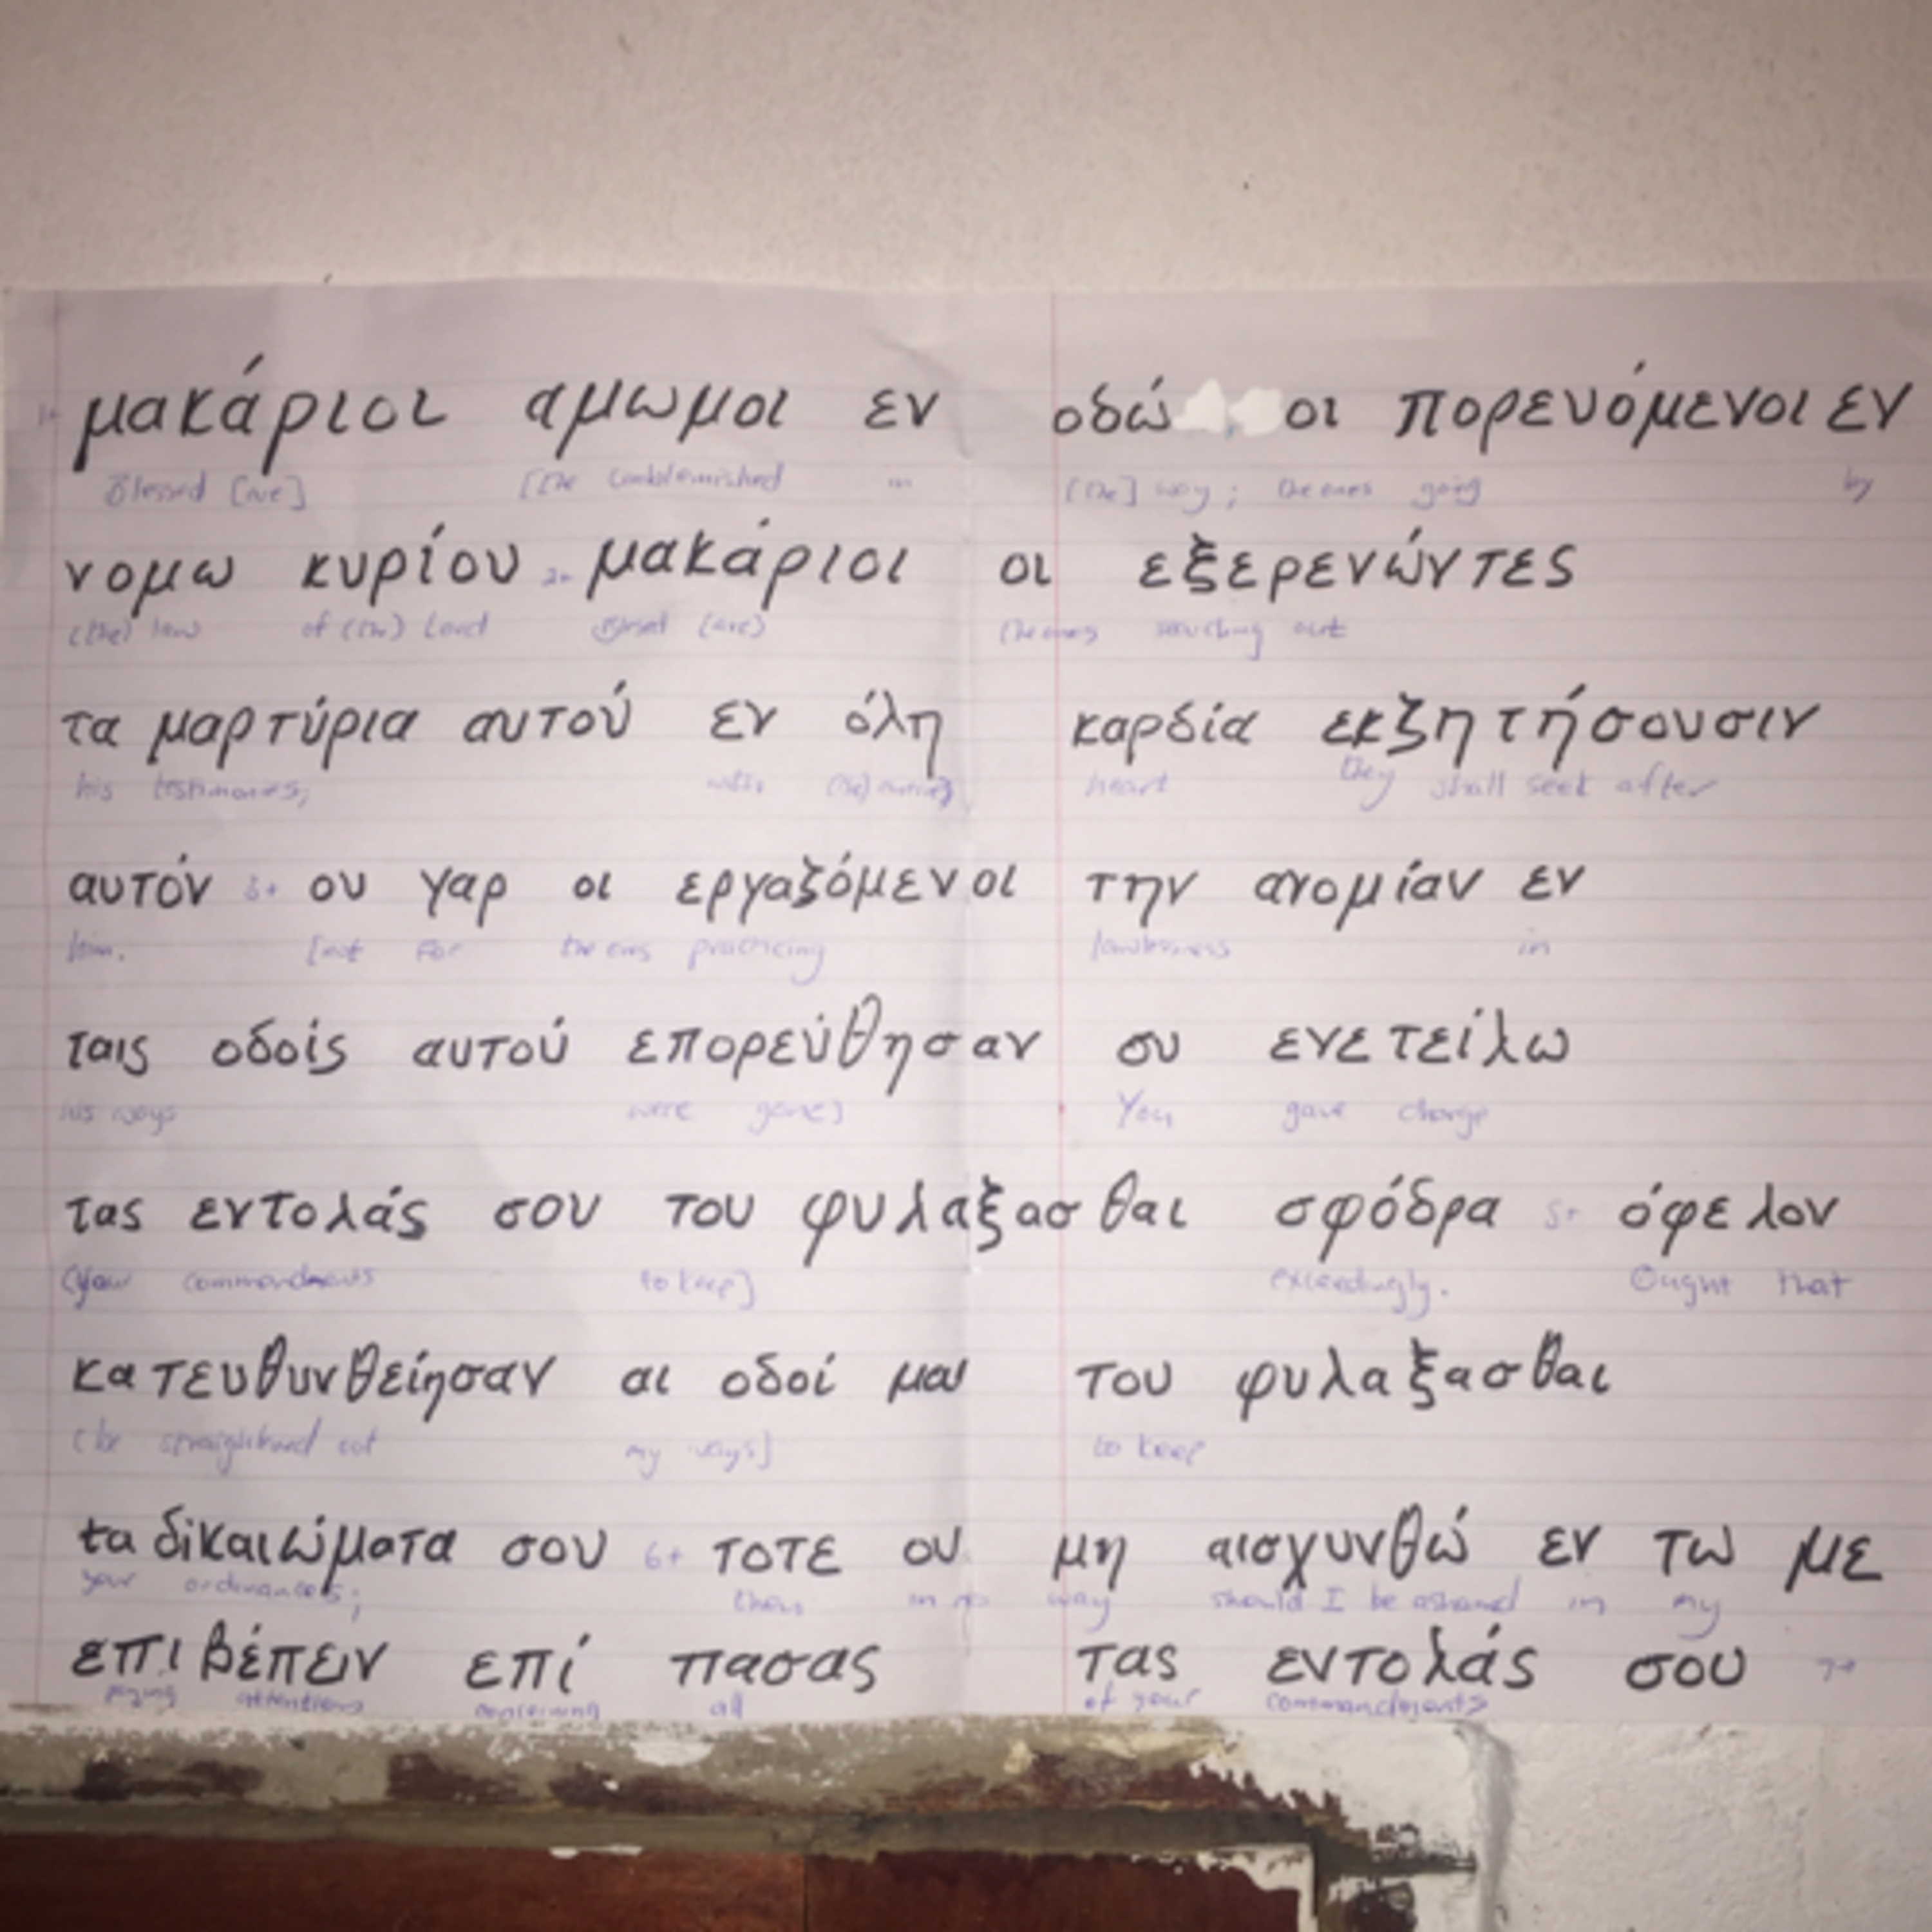 1+ μακάριοι αμωμοι εν οδώ οι πορευόμενοι εν
Blessed [are] [the unblemished in [the] way; the ones going by
νομω κυρίου 2+ μακάριοι οι εξερενώντες
(the) law of (the) Lord (are) the ones searching out
τα μαρτύρια αυτού εν όλη καρδία εκζητήσουσιν
his testimonies; with (the) heart they shall seek after
αυτόν 3+ ου γαρ οι εργαζόμενοι την ανομίαν εν
him. [not for the ones practicing lawlessness in
ταις οδοίς αυτού επορεύθησαν συ ενετείλω
his ways were gone] You gave charge
τας εντολάς σου του φυλαξασθαι σφόδρα 5+ όφελον
(your commandments to keep] exceedingly. Ought that
κατευθυνθείησαν αι οδοί μου του φυλαξασθαι
(be straightened out my ways] to keep
τα δικαιώματα σου 6+ τοτε ου μη αισχυνθώ εν τω με
your ordinances; then in no way should I be ashamed in my
επιβέπειν επί πασας τας εντολάς σου 7+
paying attentions concerning all of your commandments